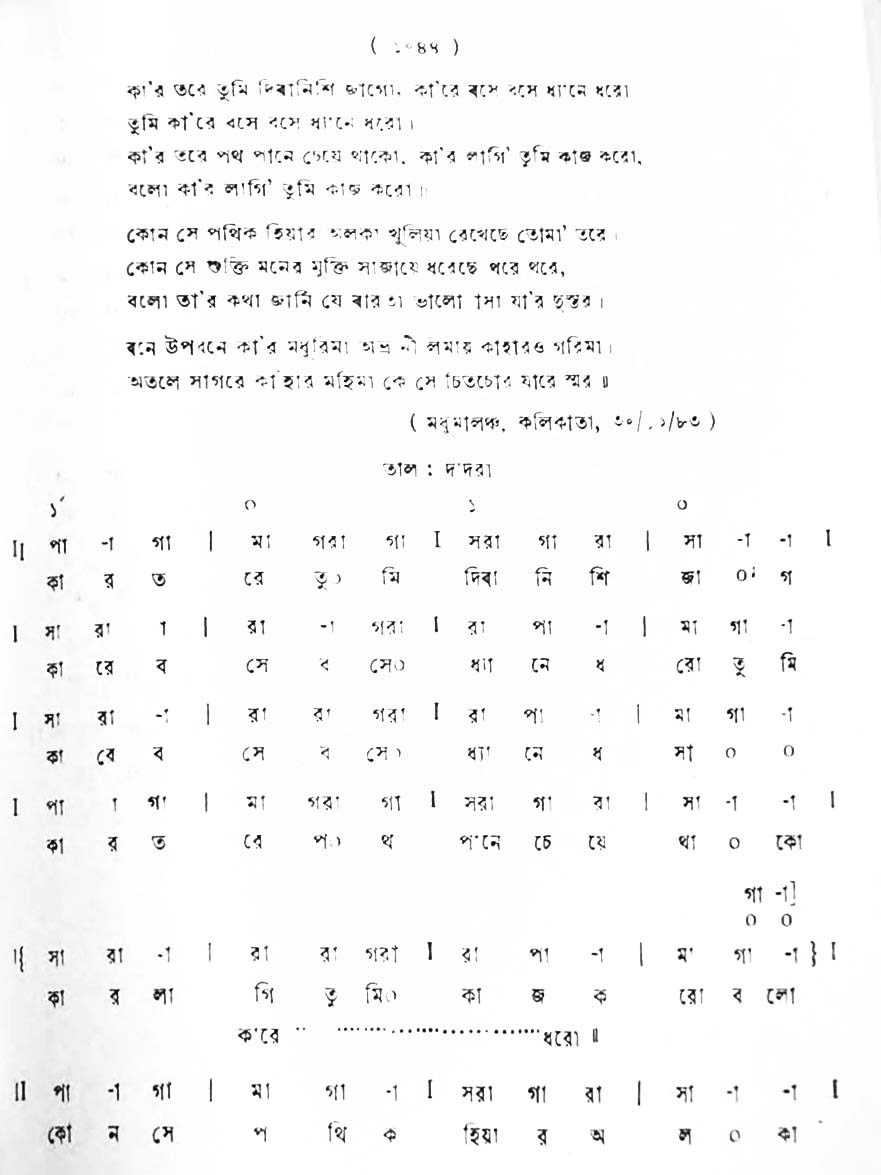 কা'র তরে তুমি দিৰানিশি জাগো, কা'রে ৰসে বসে ধ্যানে ধরো
তুমি কা'রে বসে বসে ধ্যানে ধরো।
কা'র তরে পথ পানে চেয়ে থাকো, কা'র লাগি' তুমি কাজ করো,
বলো কা'র লাগি' তুমি কাজ করো॥
কোন সে পথিক হিয়ার অলকা খুলিয়া রেখেছে তোমা' তরে।
কোন সে শুক্তি মনের মুক্তি সাজায়ে ধরেছে থরে থরে,
বলো তা'র কথা জানি যে ৰারতা ভালো যা'র দুস্তর।
ৰনে উপবনে কা'র মধুরিমা অভ্র নীলিমায় কাহারও গরিমা।
অতলে সাগরে কাহার মহিমা কে সে চিতচোর যারে স্মর॥
( মধুমালঞ্চ, কলিকাতা, /৮৩ )
তাল : দাদরা
১´ ০ ১ ০
II পা -া গা | মা গরা গা I সরা গা রা | সা -া -া I
কা র ত রে তু০ মি দিৰা নি শি জা ০ গ
I সা রা া | রা -া গরা I রা পা -া | মা গা -া
কা রে ব সে ব সে০ ধ্যা নে ধ রো তু মি
I সা রা -া | রা রা গরা I রা পা -া | মা গা -া
কা রে ব সে ব সে০ ধ্যা নে ধ সা ০ ০
I পা া গা | মা গরা গা I সরা গা রা | সা -া -া I
কা র ত রে প০ থ পানে চে য়ে থা ০ কো
গা -া]
০ ০
I{ সা রা -া | রা রা গরা I রা পা -া | মা গা -া } I
কা র লা গি তু মি০ কা জ ক রো ব লো
কা'রে ............................ধরো॥
II পা -া গা | মা গা -া I সরা গা রা | সা -া -া I
কো ন সে প থি ক হিয়া র অ ল ০ কা